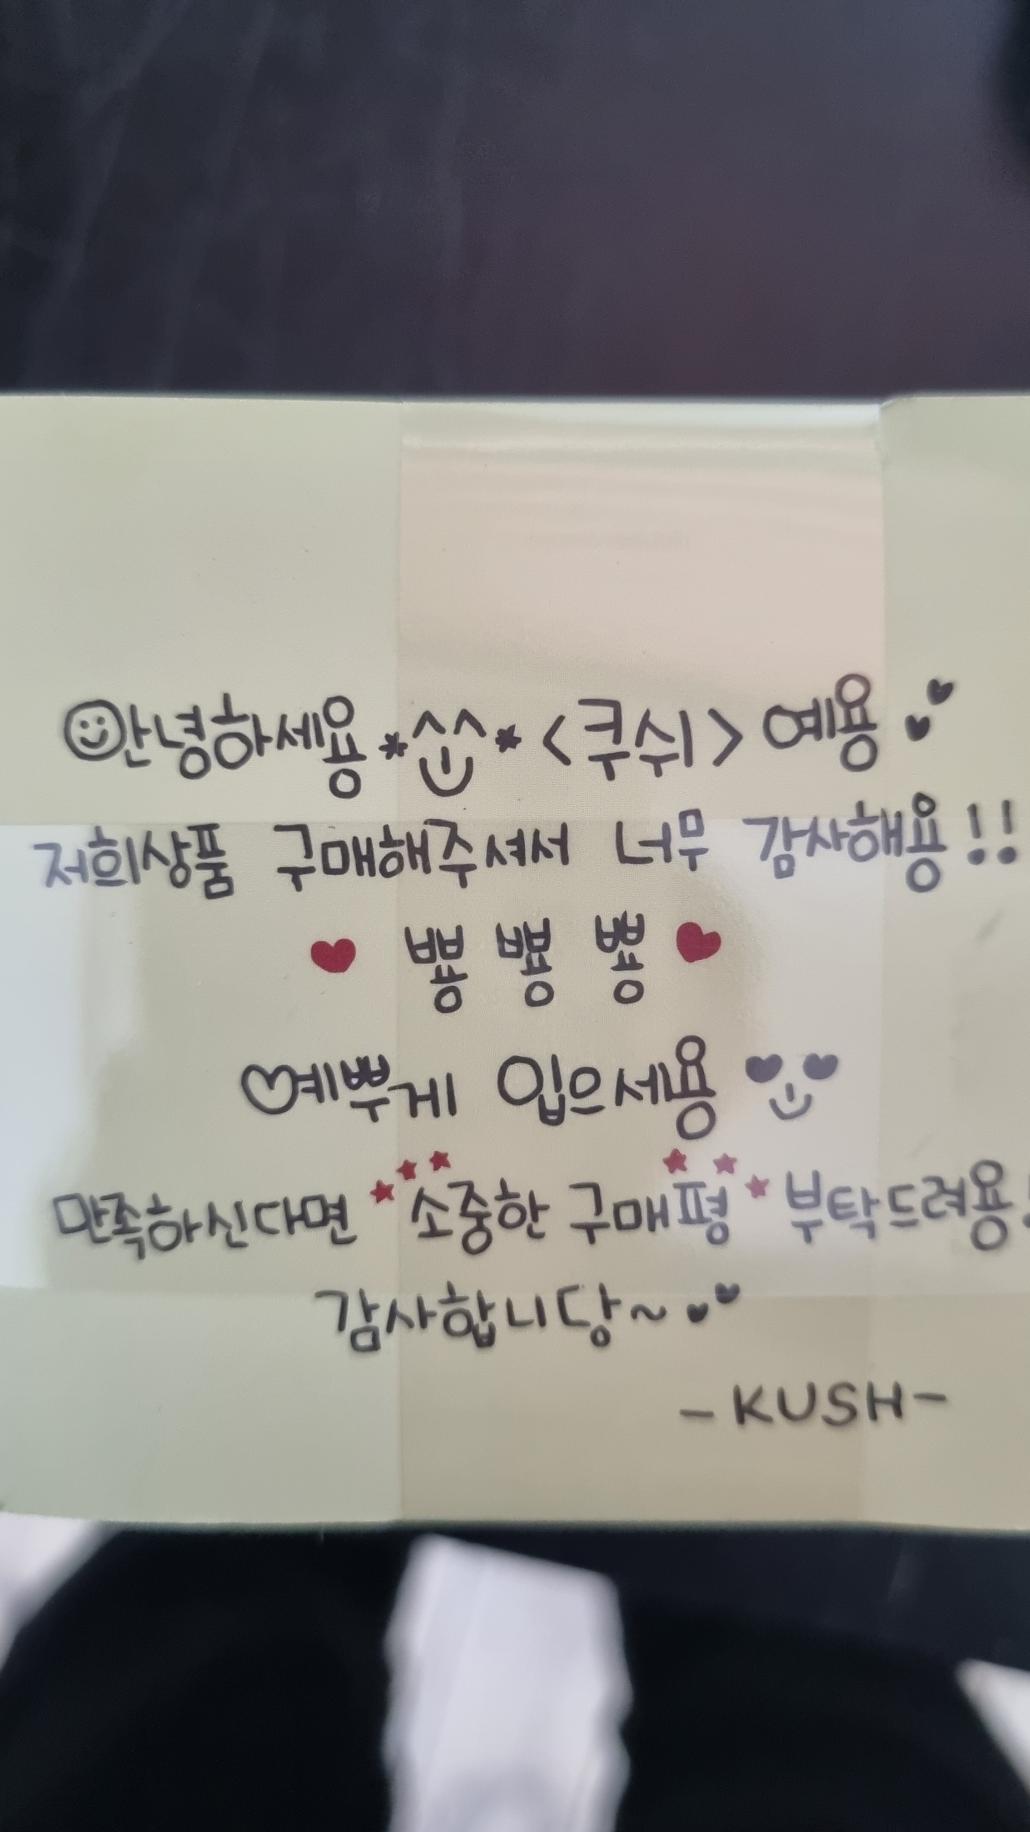 안녕하세용*^^*<쿠쉬>예용
저희상품 구매해주셔서 너무 감사해용!!
뿅 뿅 뿅
예쁘게 입으세용
만족하신다면 소중한 구매평 부탁드려용!
감사합니당~
-KUSH-